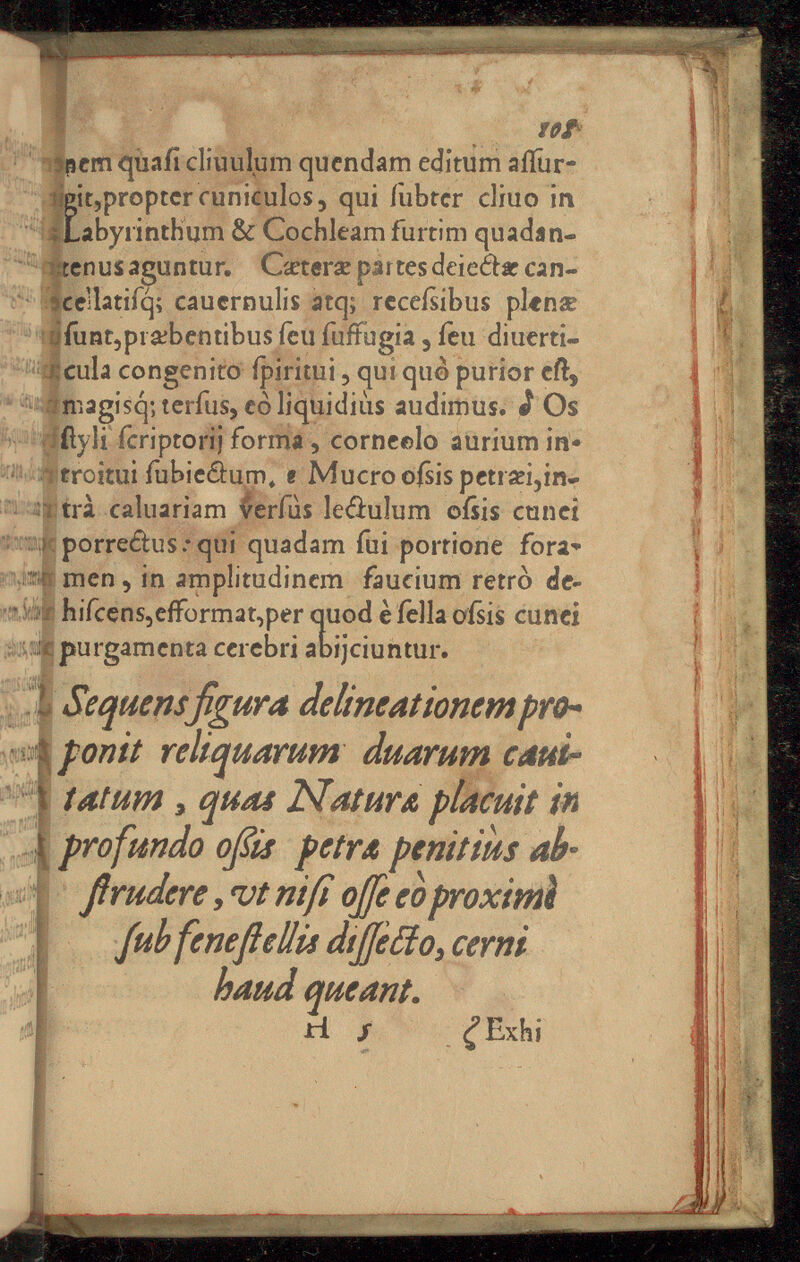 105
nem quasi cliuulum quendam editum assur-
git,propter cuniculos, qui subter cliuo in
Labyrinthum & Cochleam furtim quadan-
tenus aguntur. Cæteræ partes deiectæ can-
cellatisq; cauernulis atq; recessibus plenæ
sunt,præbentibus seu suffugia , seu diuerti-
cula congenito spiritui , qui quò purior est,
magisq́; tersus, eò liquidiùs audimus. d Os
styli scriptorij forma , corneolo aurium in-
troitui subiectum, e Mucro ossis petræi,in-
trà caluariam versùs lectulum ossis cunei
porrectus: qui quadam sui portione fora-
men , in amplitudinem faucium retrò de-
hiscens,efformat,per quod è sella ossis cunei
purgamenta cerebri abijciuntur.
Sequens figura delineationem pro-
ponit reliquarum duarum caui-
tatum , quas Natura placuit in
profundo ossis petræ penitiùs ab-
strudere , vt nisi osse eò proximè
sub fenestellis dissecto, cerni
haud queant.
H 5 ¶ Exhi